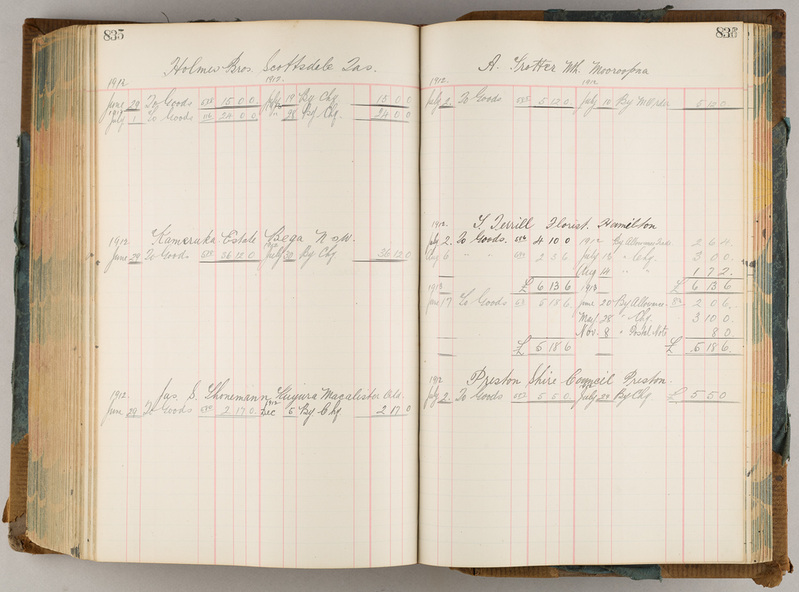 835
Holmes Bros. Scottsdale Tas.
1912 1912
June 29 To Goods 15 0 0 July 19 By Chq 15 0 0
July 1 To Goods 24 0 0 " 28 By Chq. 24 0 0
1912 Kameruka Estate Bega NSW.
June 29 To Goods 36 12 0 July 30 By Chq 36 12 0
1912 Jas. S. Thonemann
June 29 To Goods 2 17 0 Dec 6 By Chq 2 17 0
835
A. Trotter Mooroopna
1912 1912
July 2 To Goods 5 12 0 July By
1912 T. Terrill Florist. Hamilton
July 2. To Goods. 4 10 0 1912 By Allowance 2 6
Aug 6 " " 2 3 6 July 15 " Chq 3 0 0
Aug 14 " " 1 7 2
£ 6 13 6 £ 6 13 6
1913 1913
June 17 To Goods 5 18 6 June 20 By Allowance 2 0 6
28 " Chq. 3 10 0
Nov. 8 " Postal Note 8 0
£ 5 18 6 £ 5 18 6
1912 Preston Shire Council Preston.
July 2 To Goods 5 5 0 July By Chq £ 5 5 0